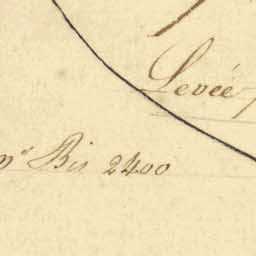 Levée
Bis 2400